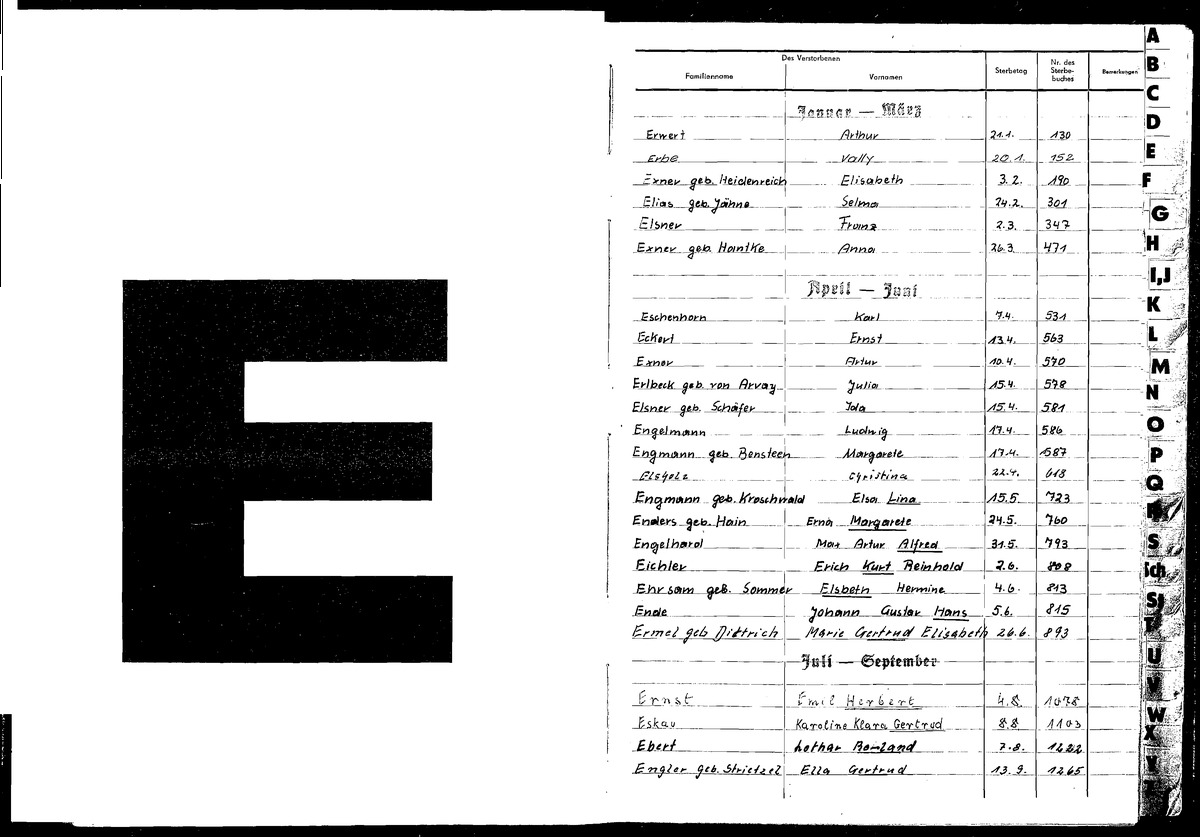 E
Des Verstorbenen
Familienname Vornamen Sterbetag Nr. des Sterbe-buches Bemerkungen
Januar — März
Erwert Arthur 21.1. 130
Erbe Vally 20.1. 152
Exner geb. Heidenreich Elisabeth 3.2. 190
Elias geb. Jähne Selma 24.2. 301
Elsner Franz 2.3. 347
Exner geb. Hantke Anna 26.3. 471
April — Juni
Eschenhorn Karl 7.4. 531
Eckert Ernst 13.4. 563
Exner Artur 10.4. 570
Erlbeck geb. von Arvay Julia 15.4. 578
Elsner geb. Schäfer Ida 15.4. 581
Engelmann Ludwig 17.4. 586
Engmann geb. Bensteen Margarete 17.4. 587
Elsholz Christina 22.4. 618
Engmann geb. Kroschwald Elsa Lina 15.5. 723
Enders geb. Hain Erna Margarete 24.5. 760
Engelhardt Max Artur Alfred 31.5. 793
Eichler Erich Kurt Reinhold 2.6. 808
Ehrsam geb. Sommer Elsbeth Hermine 4.6. 813
Ende Johann Gustav Hans 5.6. 815
Ermel geb Dittrich Marie Gertrud Elisabeth 26.6. 893
Juli — September
Ernst Emil Herbert 4.8. 1078
Eskau Karoline Klara Gertrud 8.8 1103
Ebert Lothar 7.8. 1222
Engler geb. Strietzel Ella Gertrud 13.9. 1265
A
B
C
D
E
F
G
H
I,J
K
L
M
N
O
P
Q
R
S
Sch
St
T
U
V
W
X
Y